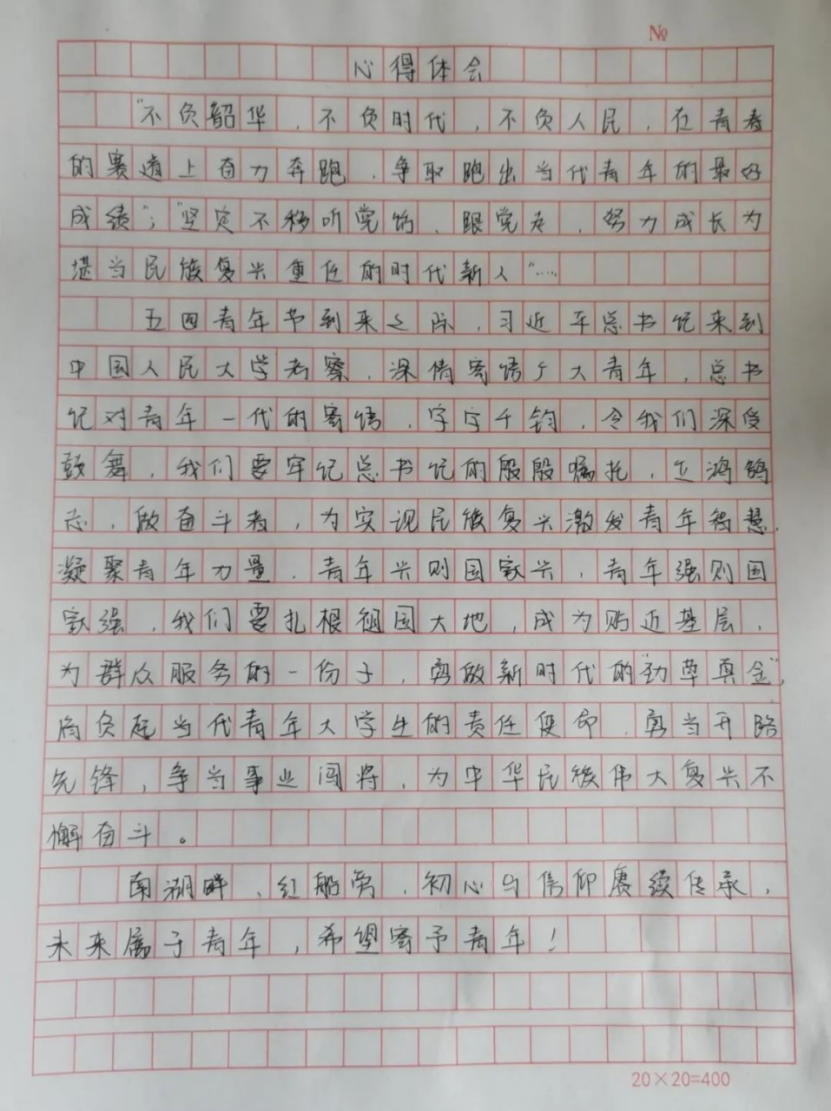 №
心得体会
"不负韶华，不负时代，不负人民，在青春
的赛道上奋力奔跑，争取跑出当代青年的最好
成绩"；"坚定不移听党话、跟党走，努力成长为
堪当民族复兴重任的时代新人"……
五四青年节到来之际，习近平总书记来到
中国人民大学考察，深情寄语广大青年，总书
记对青年一代的寄语，字字千钧，令我们深受
鼓舞，我们要牢记总书记的殷殷嘱托，立鸿鹄
志，做奋斗者，为实现民族复兴激发青年智慧，
凝聚青年力量，青年兴则国家兴，青年强则国
家强，我们要扎根祖国大地，成为贴近基层，
为群众服务的一份子，勇做新时代的"劲草真金"，
肩负起当代青年大学生的责任使命，勇当开路
先锋，争当事业闯将，为中华民族伟大复兴不
懈奋斗。
南湖畔，红船旁，初心与信仰赓续传承，
未来属于青年，希望寄予青年！
20×20=400